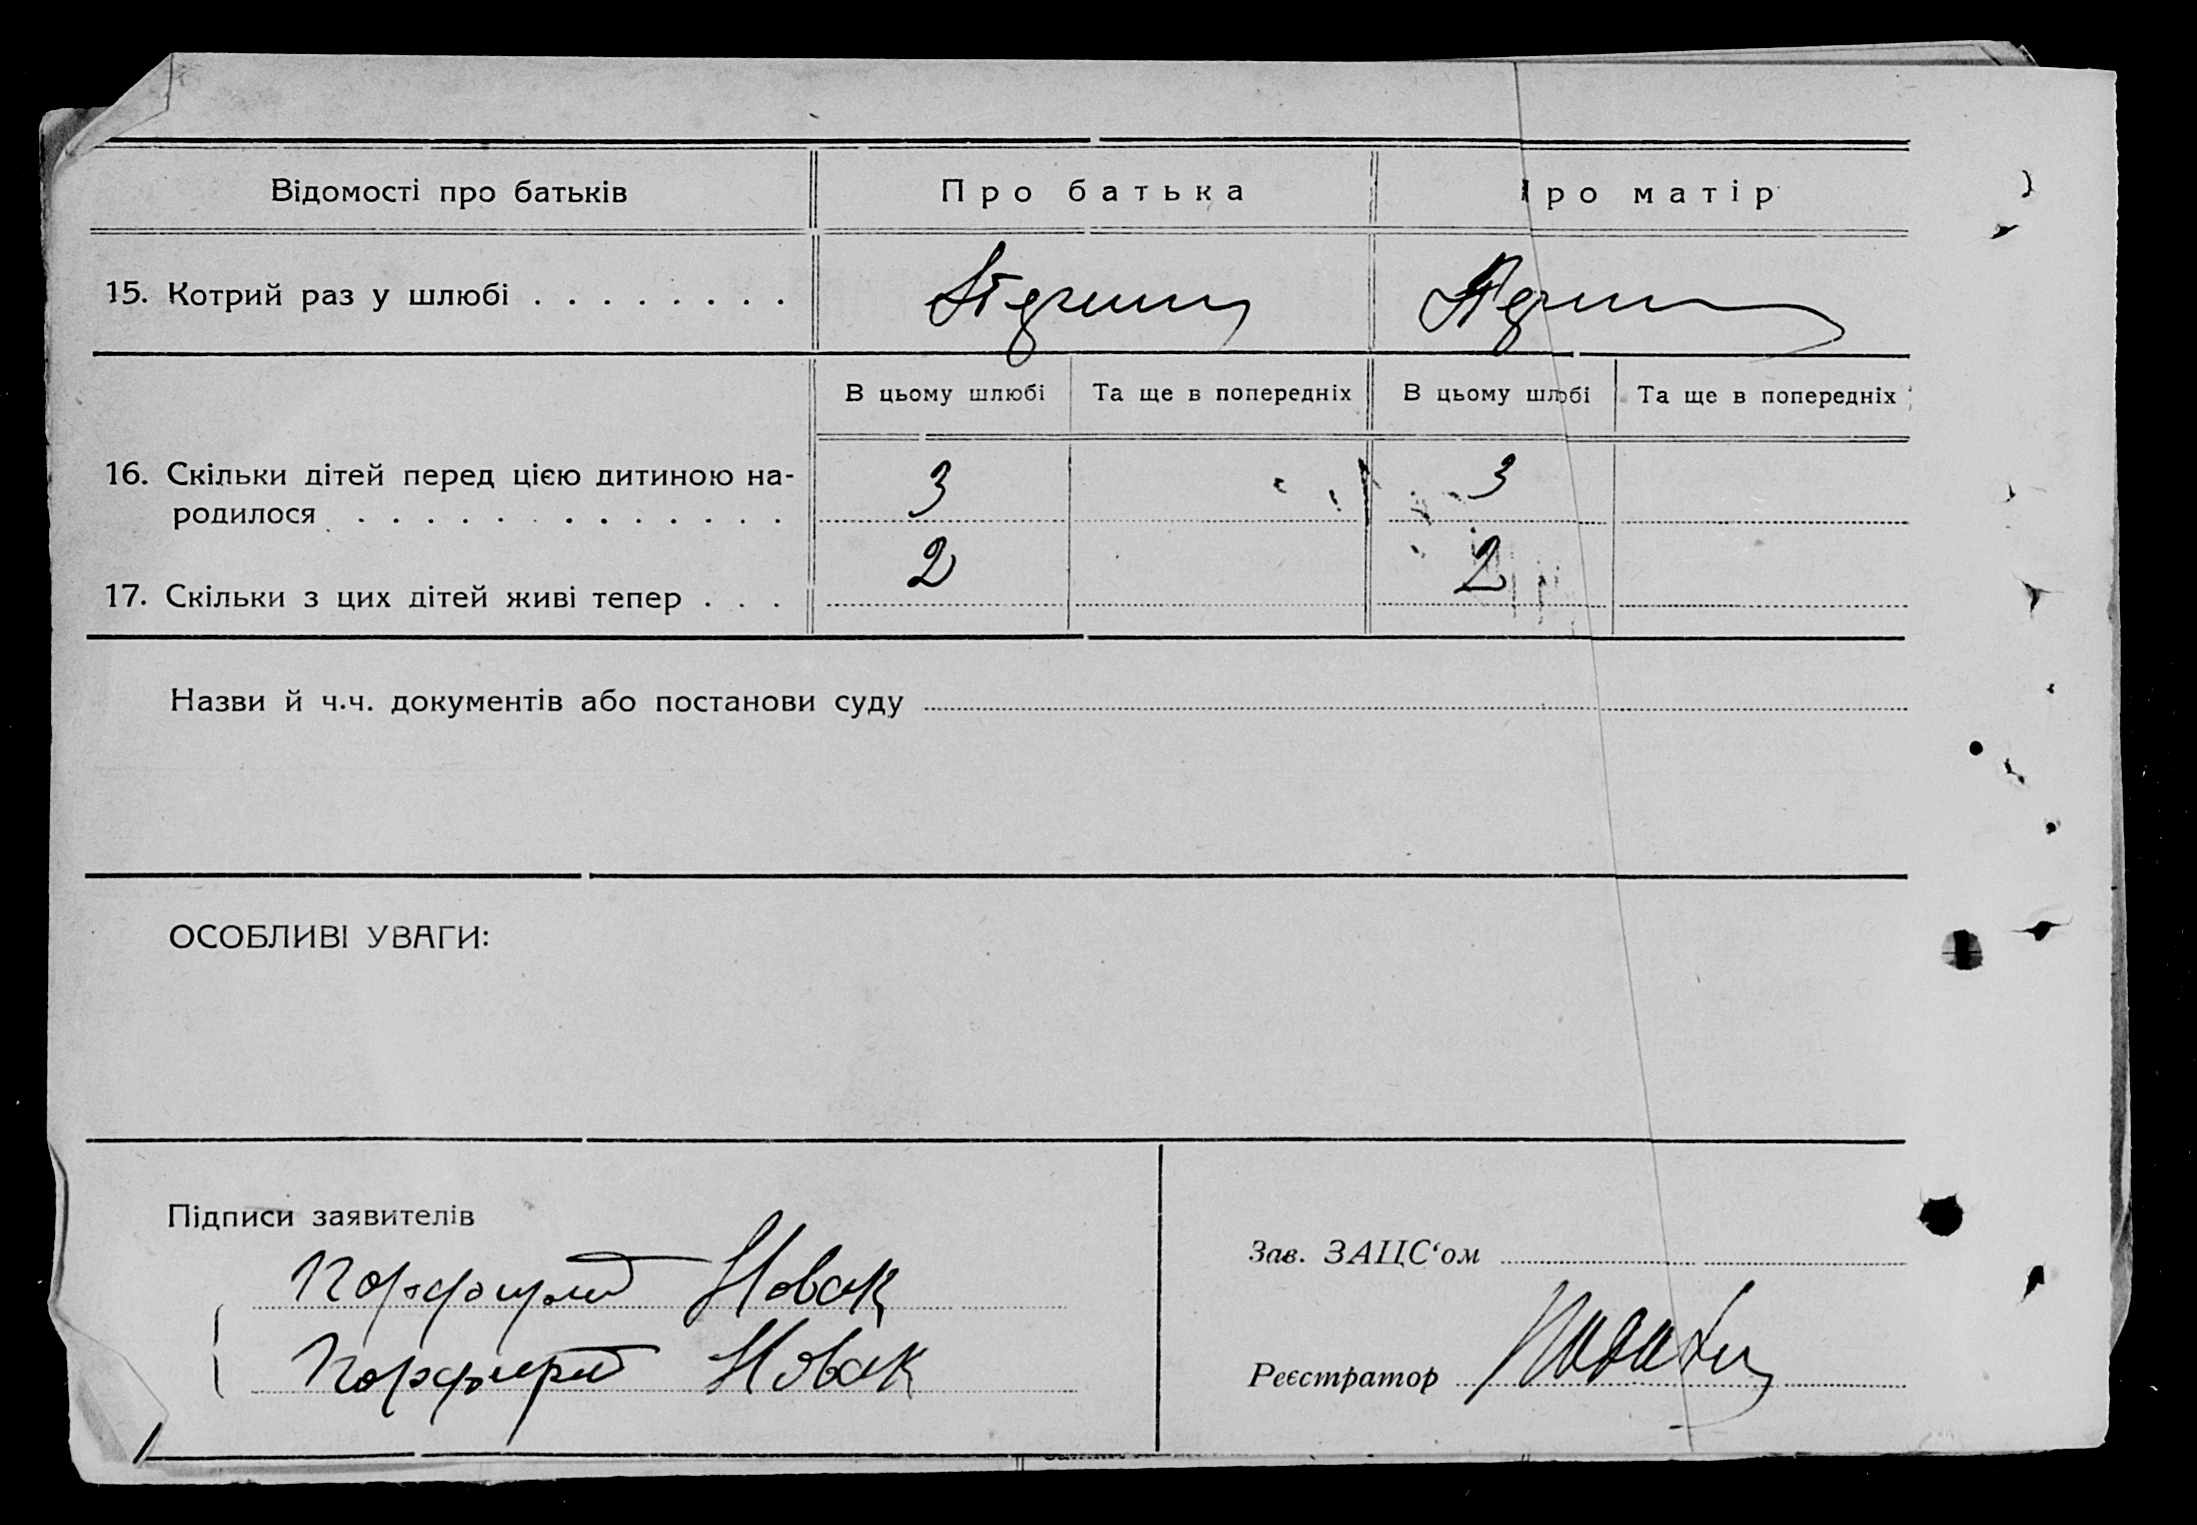 Відомості про батьків
Про батька
Про матір
15. Котрий раз у шлюбі . . . . . . . .
В цьому шлюбі
Та ще в попередніх
В цьому шлюбі
Та ще в попередніх
16. Скільки дітей перед цією дитиною на-
родилося . . . . . . . . . . . . .
3
3
17. Скільки з цих дітей живі тепер . . .
2
2
Назви й ч.ч. документів або постанови суду
ОСОБЛИВІ УВАГИ:
Підписи заявителів
Порфирий Новак
Порфирий Новак
Зав. ЗАЦС‘ом
Реєстратор